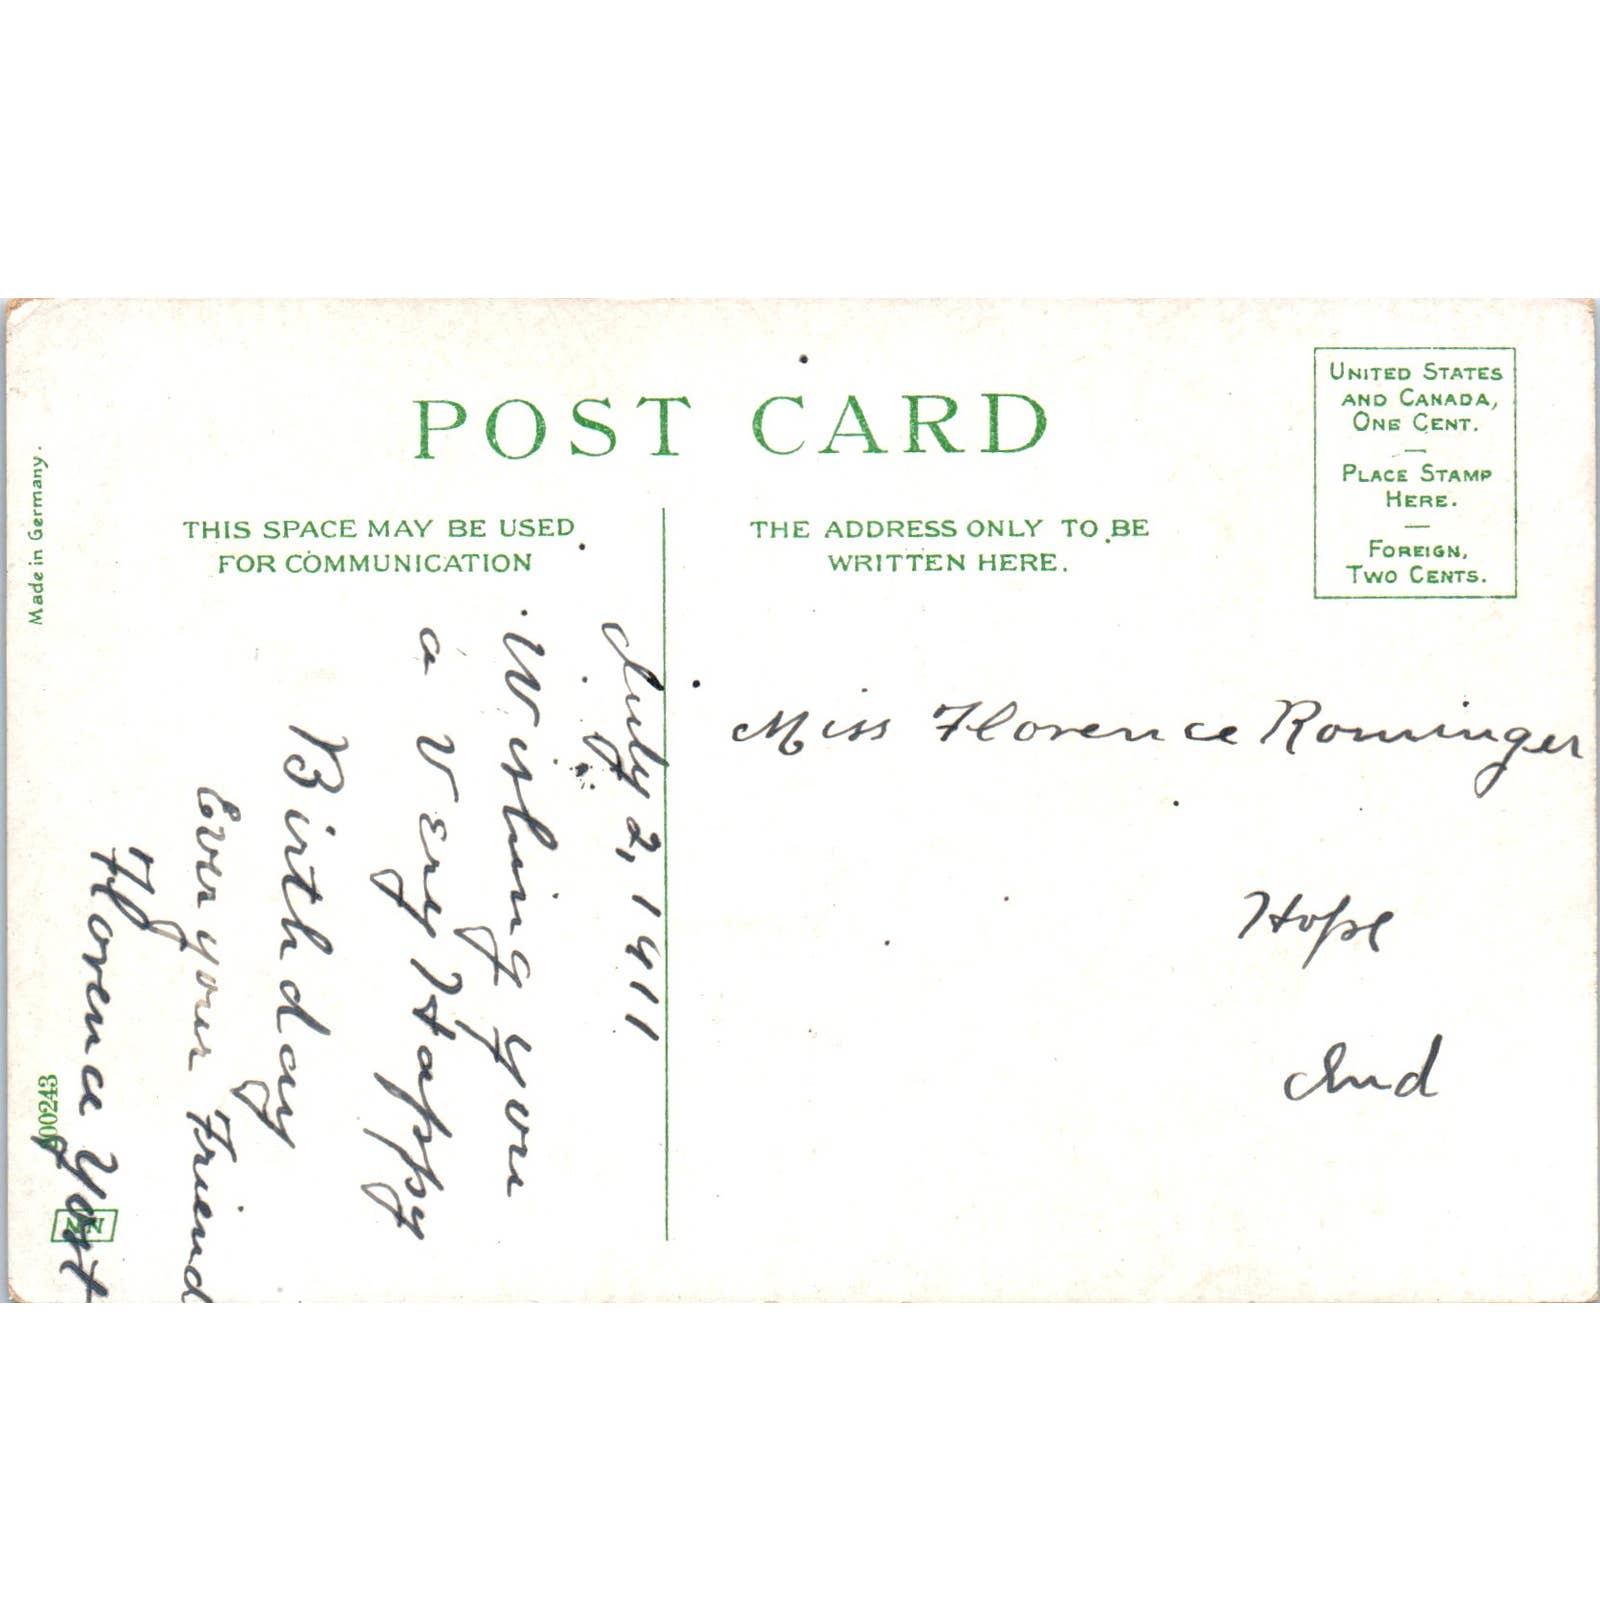 POST CARD
THIS SPACE MAY BE USED
FOR COMMUNICATION
THE ADDRESS ONLY TO BE
WRITTEN HERE.
UNITED STATES
AND CANADA,
ONE CENT.
PLACE STAMP
HERE.
FOREIGN,
TWO CENTS.
Made in Germany.
July 2, 1911
Wishing you
a Very Happy
Birthday
Ever your Friend
Florence Yost
Miss Florence Rominger
Hope
Ind